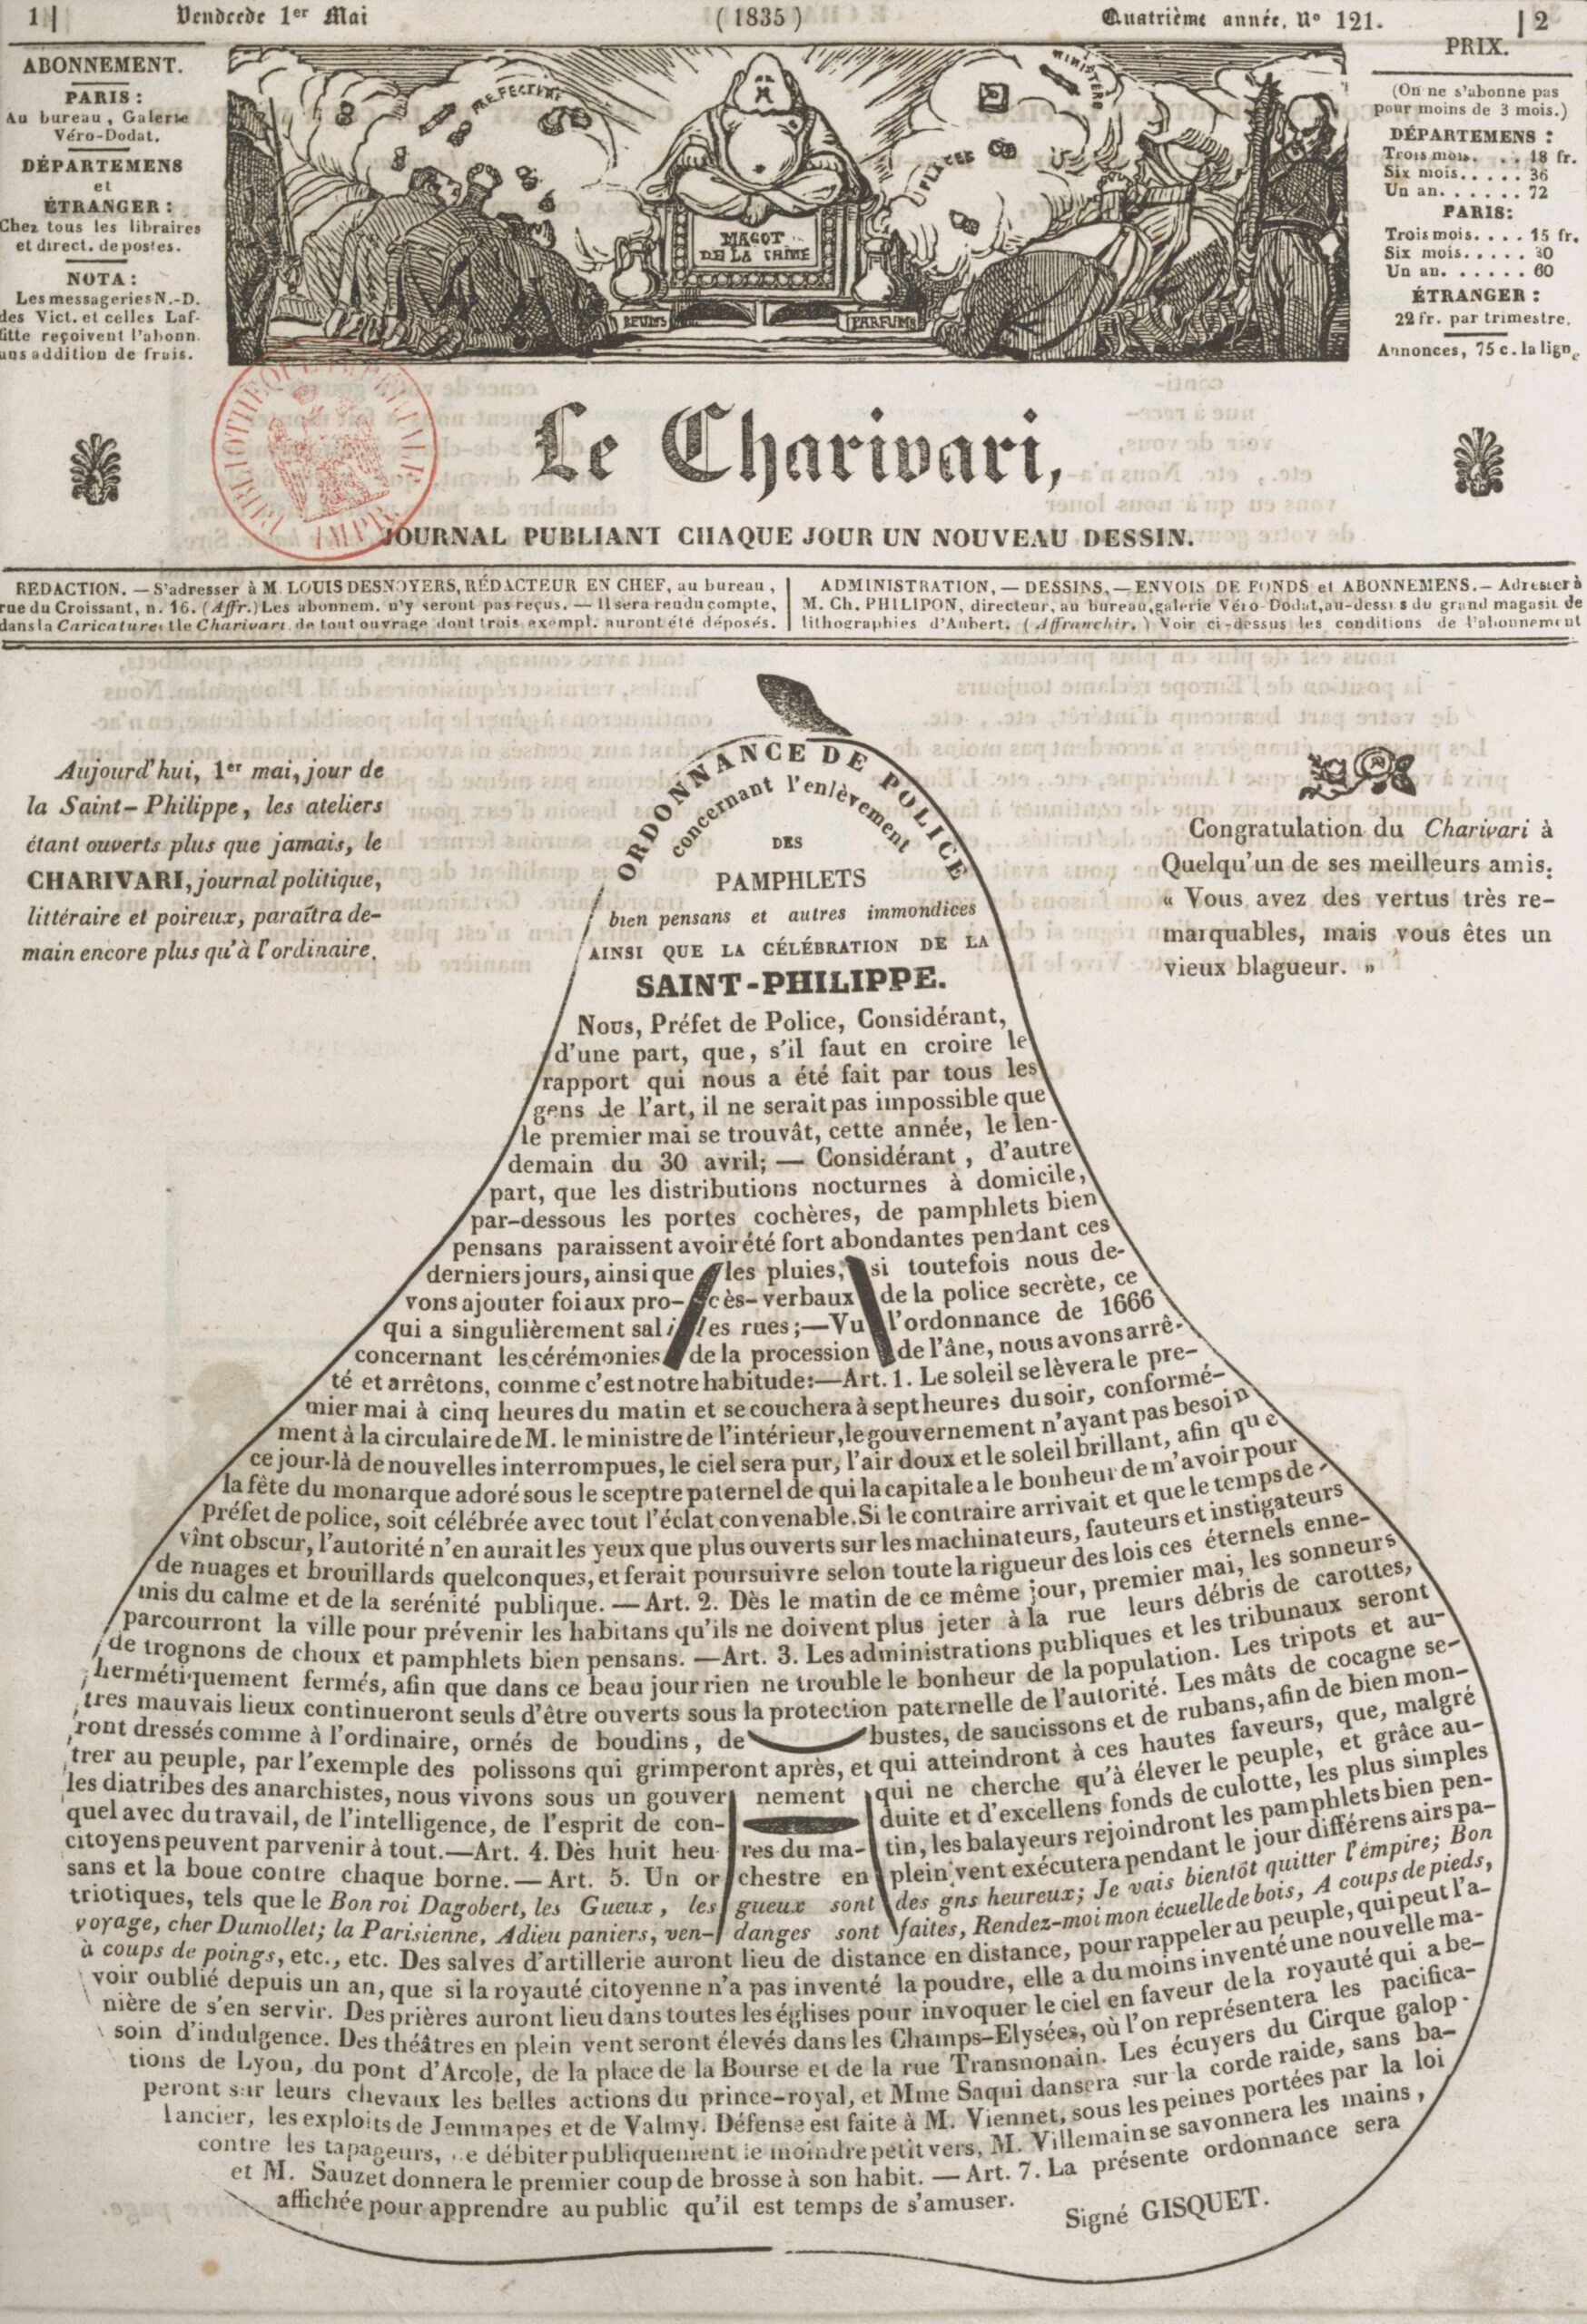 1
Vendredi 1er Mai
( 1835 )
Quatrième année, No 121.
2
ABONNEMENT.
PARIS :
Au bureau, Galerie
Véro-Dodat.
DÉPARTEMENS
et
ÉTRANGER :
Chez tous les libraires
et direct. de postes.
NOTA :
Les messageries N.-D.
des Vict. et celles Laf-
fitte reçoivent l'abonn.
ans addition de frais.
PREFECTURE
MINISTERE
PLACES
MAGOT
DE LA CHINE
FLEURS
PARFUMS
PRIX.
(On ne s'abonne pas
pour moins de 3 mois.)
DÉPARTEMENS :
Trois mois. . . 18 fr.
Six mois. . . . . 36
Un an. . . . . . 72
PARIS:
Trois mois. . . . 15 fr.
Six mois. . . . . 30
Un an. . . . . . 60
ÉTRANGER :
22 fr. par trimestre.
Annonces, 75 c. la ligne
BIBLIOTHEQUE IMPERIALE
IMPR
Le Charivari,
JOURNAL PUBLIANT CHAQUE JOUR UN NOUVEAU DESSIN.
REDACTION. — S'adresser à M. LOUIS DESNOYERS, RÉDACTEUR EN CHEF, au bureau,
rue du Croissant, n. 16. (Affr.) Les abonnem. n'y seront pas reçus. — Il sera rendu compte,
dans la Caricature et le Charivari, de tout ouvrage dont trois exempl. auront été déposés.
ADMINISTRATION, — DESSINS, — ENVOIS DE FONDS et ABONNEMENS. — Adresser à
M. Ch. PHILIPON, directeur, au bureau, galerie Véro-Dodat, au-dessus du grand magasin de
lithographies d'Aubert. (Affranchir.) Voir ci-dessus les conditions de l'abonnement
Aujourd'hui, 1er mai, jour de
la Saint-Philippe, les ateliers
étant ouverts plus que jamais, le
CHARIVARI, journal politique,
littéraire et poireux, paraîtra de-
main encore plus qu'à l'ordinaire.
Congratulation du Charivari à
Quelqu'un de ses meilleurs amis.
« Vous avez des vertus très re-
marquables, mais vous êtes un
vieux blagueur. »
ORDONNANCE DE POLICE
concernant l'enlèvement
DES
PAMPHLETS
bien pensans et autres immondices
AINSI QUE LA CÉLÉBRATION DE LA
SAINT-PHILIPPE.
Nous, Préfet de Police, Considérant,
d'une part, que, s'il faut en croire le
rapport qui nous a été fait par tous les
gens de l'art, il ne serait pas impossible que
le premier mai se trouvât, cette année, le len-
demain du 30 avril; — Considérant, d'autre
part, que les distributions nocturnes à domicile,
par-dessous les portes cochères, de pamphlets bien
pensans paraissent avoir été fort abondantes pendant ces
derniers jours, ainsi que les pluies, si toutefois nous de-
vons ajouter foi aux pro-cès-verbaux de la police secrète, ce
qui a singulièrement sali les rues;—Vu l'ordonnance de 1666
concernant les cérémonies de la procession de l'âne, nous avons arrê-
té et arrêtons, comme c'est notre habitude:—Art. 1. Le soleil se lèvera le pre-
mier mai à cinq heures du matin et se couchera à sept heures du soir, conformé-
ment à la circulaire de M. le ministre de l'intérieur, le gouvernement n'ayant pas besoin
ce jour-là de nouvelles interrompues, le ciel sera pur, l'air doux et le soleil brillant, afin que
la fête du monarque adoré sous le sceptre paternel de qui la capitale a le bonheur de m'avoir pour
préfet de police, soit célébrée avec tout l'éclat convenable. Si le contraire arrivait et que le temps de-
vînt obscur, l'autorité n'en aurait les yeux que plus ouverts sur les machinateurs, fauteurs et instigateurs
de nuages et brouillards quelconques, et ferait poursuivre selon toute la rigueur des lois ces éternels enne-
mis du calme et de la serénité publique. — Art. 2. Dès le matin de ce même jour, premier mai, les sonneurs
parcourront la ville pour prévenir les habitans qu'ils ne doivent plus jeter à la rue leurs débris de carottes,
de trognons de choux et pamphlets bien pensans. —Art. 3. Les administrations publiques et les tribunaux seront
hermétiquement fermés, afin que dans ce beau jour rien ne trouble le bonheur de la population. Les tripots et au-
tres mauvais lieux continueront seuls d'être ouverts sous la protection paternelle de l'autorité. Les mâts de cocagne se-
ront dressés comme à l'ordinaire, ornés de boudins, de bustes, de saucissons et de rubans, afin de bien mon-
trer au peuple, par l'exemple des polissons qui grimperont après, et qui atteindront à ces hautes faveurs, que, malgré
les diatribes des anarchistes, nous vivons sous un gouver nement qui ne cherche qu'à élever le peuple, et grâce au-
quel avec du travail, de l'intelligence, de l'esprit de con- duite et d'excellens fonds de culotte, les plus simples
citoyens peuvent parvenir à tout.—Art. 4. Dès huit heu res du ma- tin, les balayeurs rejoindront les pamphlets bien pen-
sans et la boue contre chaque borne. — Art. 5. Un or chestre en plein vent exécutera pendant le jour différens airs pa-
triotiques, tels que le Bon roi Dagobert, les Gueux, les gueux sont des gns heureux; Je vais bientôt quitter l'émpire; Bon
voyage, cher Dumollet; la Parisienne, Adieu paniers, ven- danges sont faites, Rendez-moi mon écuelle de bois, A coups de pieds,
à coups de poings, etc., etc. Des salves d'artillerie auront lieu de distance en distance, pour rappeler au peuple, qui peut l'a-
voir oublié depuis un an, que si la royauté citoyenne n'a pas inventé la poudre, elle a du moins inventé une nouvelle ma-
nière de s'en servir. Des prières auront lieu dans toutes les églises pour invoquer le ciel en faveur de la royauté qui a be-
soin d'indulgence. Des théâtres en plein vent seront élevés dans les Champs-Elysées, où l'on représentera les pacifica-
tions de Lyon, du pont d'Arcole, de la place de la Bourse et de la rue Transnonain. Les écuyers du Cirque galop-
peront sur leurs chevaux les belles actions du prince-royal, et Mme Saqui dansera sur la corde raide, sans ba-
lancier, les exploits de Jemmapes et de Valmy. Défense est faite à M. Viennet, sous les peines portées par la loi
contre les tapageurs, de débiter publiquement le moindre petit vers, M. Villemain se savonnera les mains,
et M. Sauzet donnera le premier coup de brosse à son habit. — Art. 7. La présente ordonnance sera
affichée pour apprendre au public qu'il est temps de s'amuser.
Signé GISQUET.